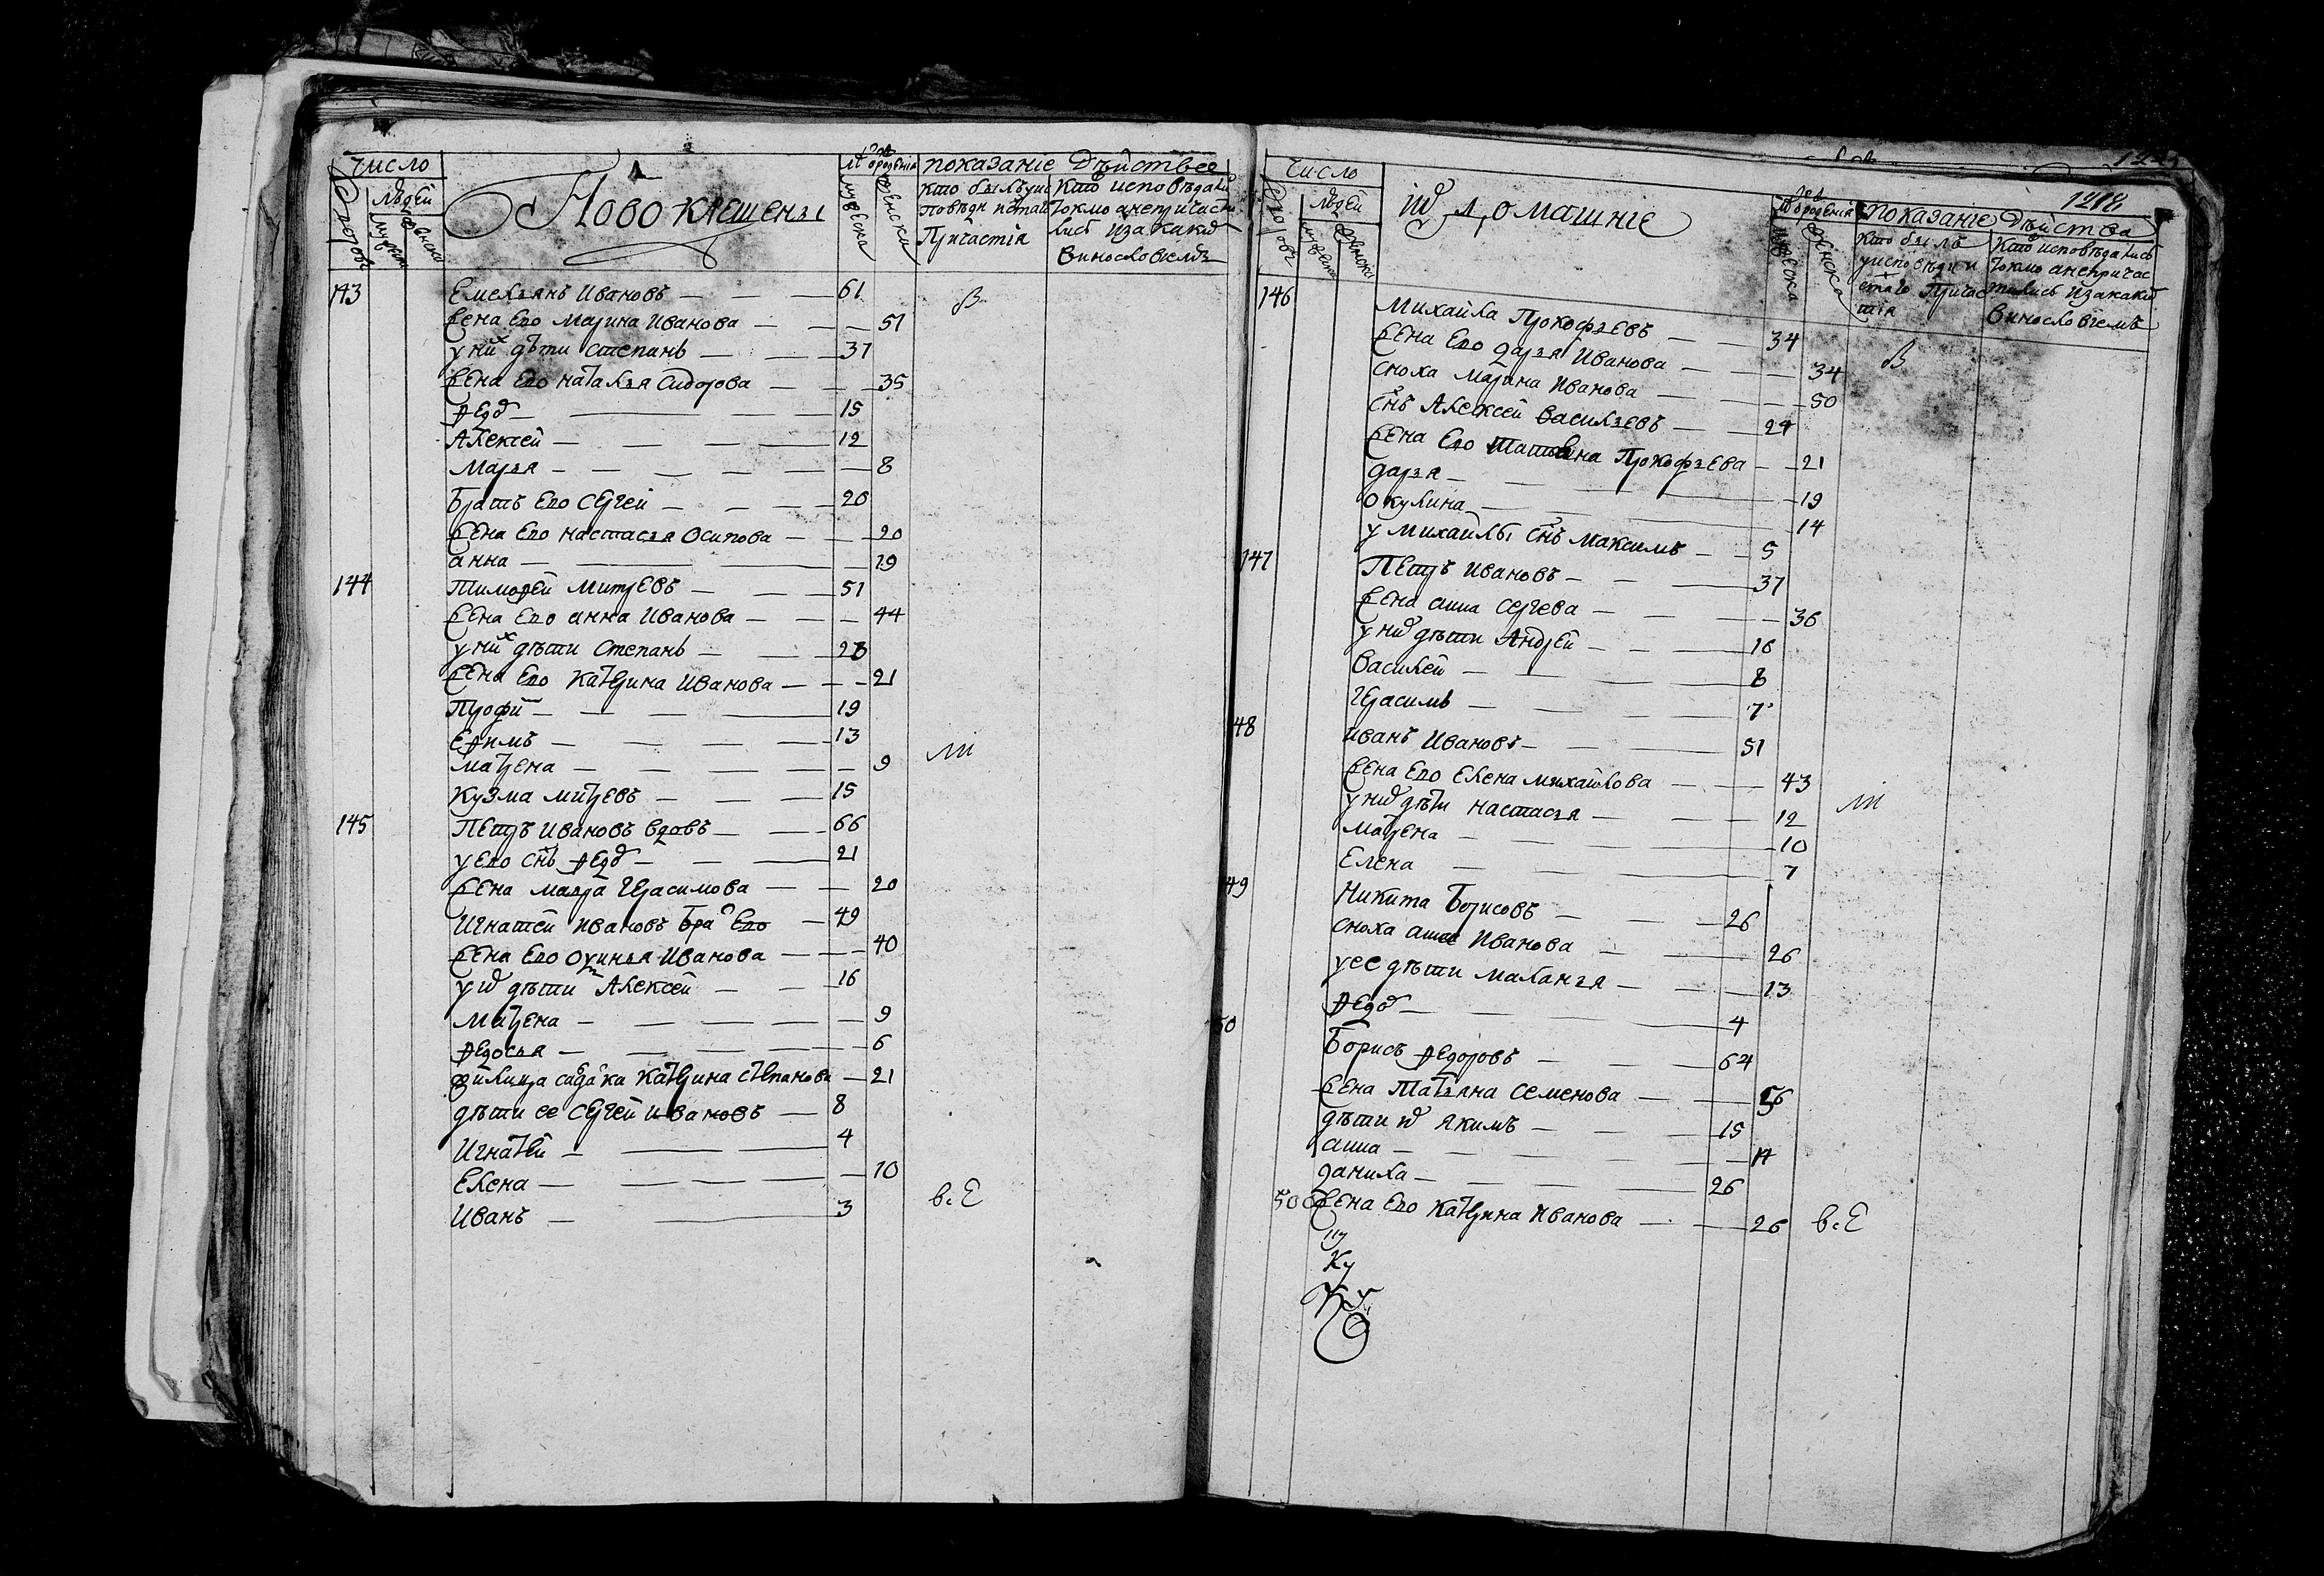 число
Дворовъ
людей
мужеска
женска
Новокрещены
лѣ ѿ рожденія
мужеска
женска
показаніе дѣйствее
кто былъ у ис
повѣди и стаго
Причастія
кто исповѣдали
токмо анепричасти
лись изакакиⷯ
винословиемъ
143
Емельянъ Ивановъ — 61
жена Ево Марина Иванова — 51
у ниⷯ дѣти Степанъ — 37
жена Ево Наталья Сидорова — 35
Ѳедоⷬ — 15
Алексей — 12
Марья — 8
Братъ Ево Сергей — 20
жена Ево настасья Осипова — 20
анна — 19
144
Тимоѳей Митревъ — 51
жена Ево анна Иванова — 44
у ниⷯ дѣти Степанъ — 23
жена Ево Катерина Иванова — 21
Профи — 19
Еѳимъ — 13
Матрена — 9
Кузма митревъ — 15
145
Петръ Ивановъ вдовъ — 66
у Ево снъ Ѳедоⷬ — 21
жена мавра Герасимова — 20
Игнатей Ивановъ Браⷮ Ево — 49
жена Ево Иванова — 40
у иⷯ дѣти Алексей — 16
Матрена — 9
Ѳедосья — 6
Катерина степанова — 21
дѣти ее Сергей Ивановъ — 8
Игнатей — 4
Елена — 10
Иванъ — 3
В
м
в.Е
1218
число
Дворовъ
людей
мужеска
женска
иⷯ домашніе
лѣ ѿ рожденія
мужеска
женска
Показаніе Дѣйства
кто былъ
у исповѣди и
стаго Причас
тія
Кто исповѣдались
токмо анепричас
тились изакакиⷯ
винословиемъ
146
Михайла Прокофьевъ — 34
жена Ево дарья Иванова — 34
сноха Марина Иванова — 50
снъ Алексей Васильевъ — 24
жена Ево Татьяна Прокофьева — 21
дарья — 19
окулина — 14
у михайлы снъ Максимъ — 5
147
Петръ Ивановъ — 37
жена анна Сергева — 36
у ниⷯ дѣти Андрей — 16
Василей — 8
Герасимъ — 7
48
иванъ Ивановъ — 51
жена Ево Елена михайлова — 43
у ниⷯ дѣти настасья — 12
матрена — 10
Елена — 7
49
Никита Борисовъ — 26
сноха анна Иванова — 26
у ее дѣти маланья — 13
Ѳедоⷬ — 4
50
Борисъ Ѳедоровъ — 64
жена Татьяна Семенова — 56
дѣти иⷯ якимъ — 15
анна — 14
данила — 26
500
жена Ево Катерина Иванова — 26
Ку
В
м
в.Е